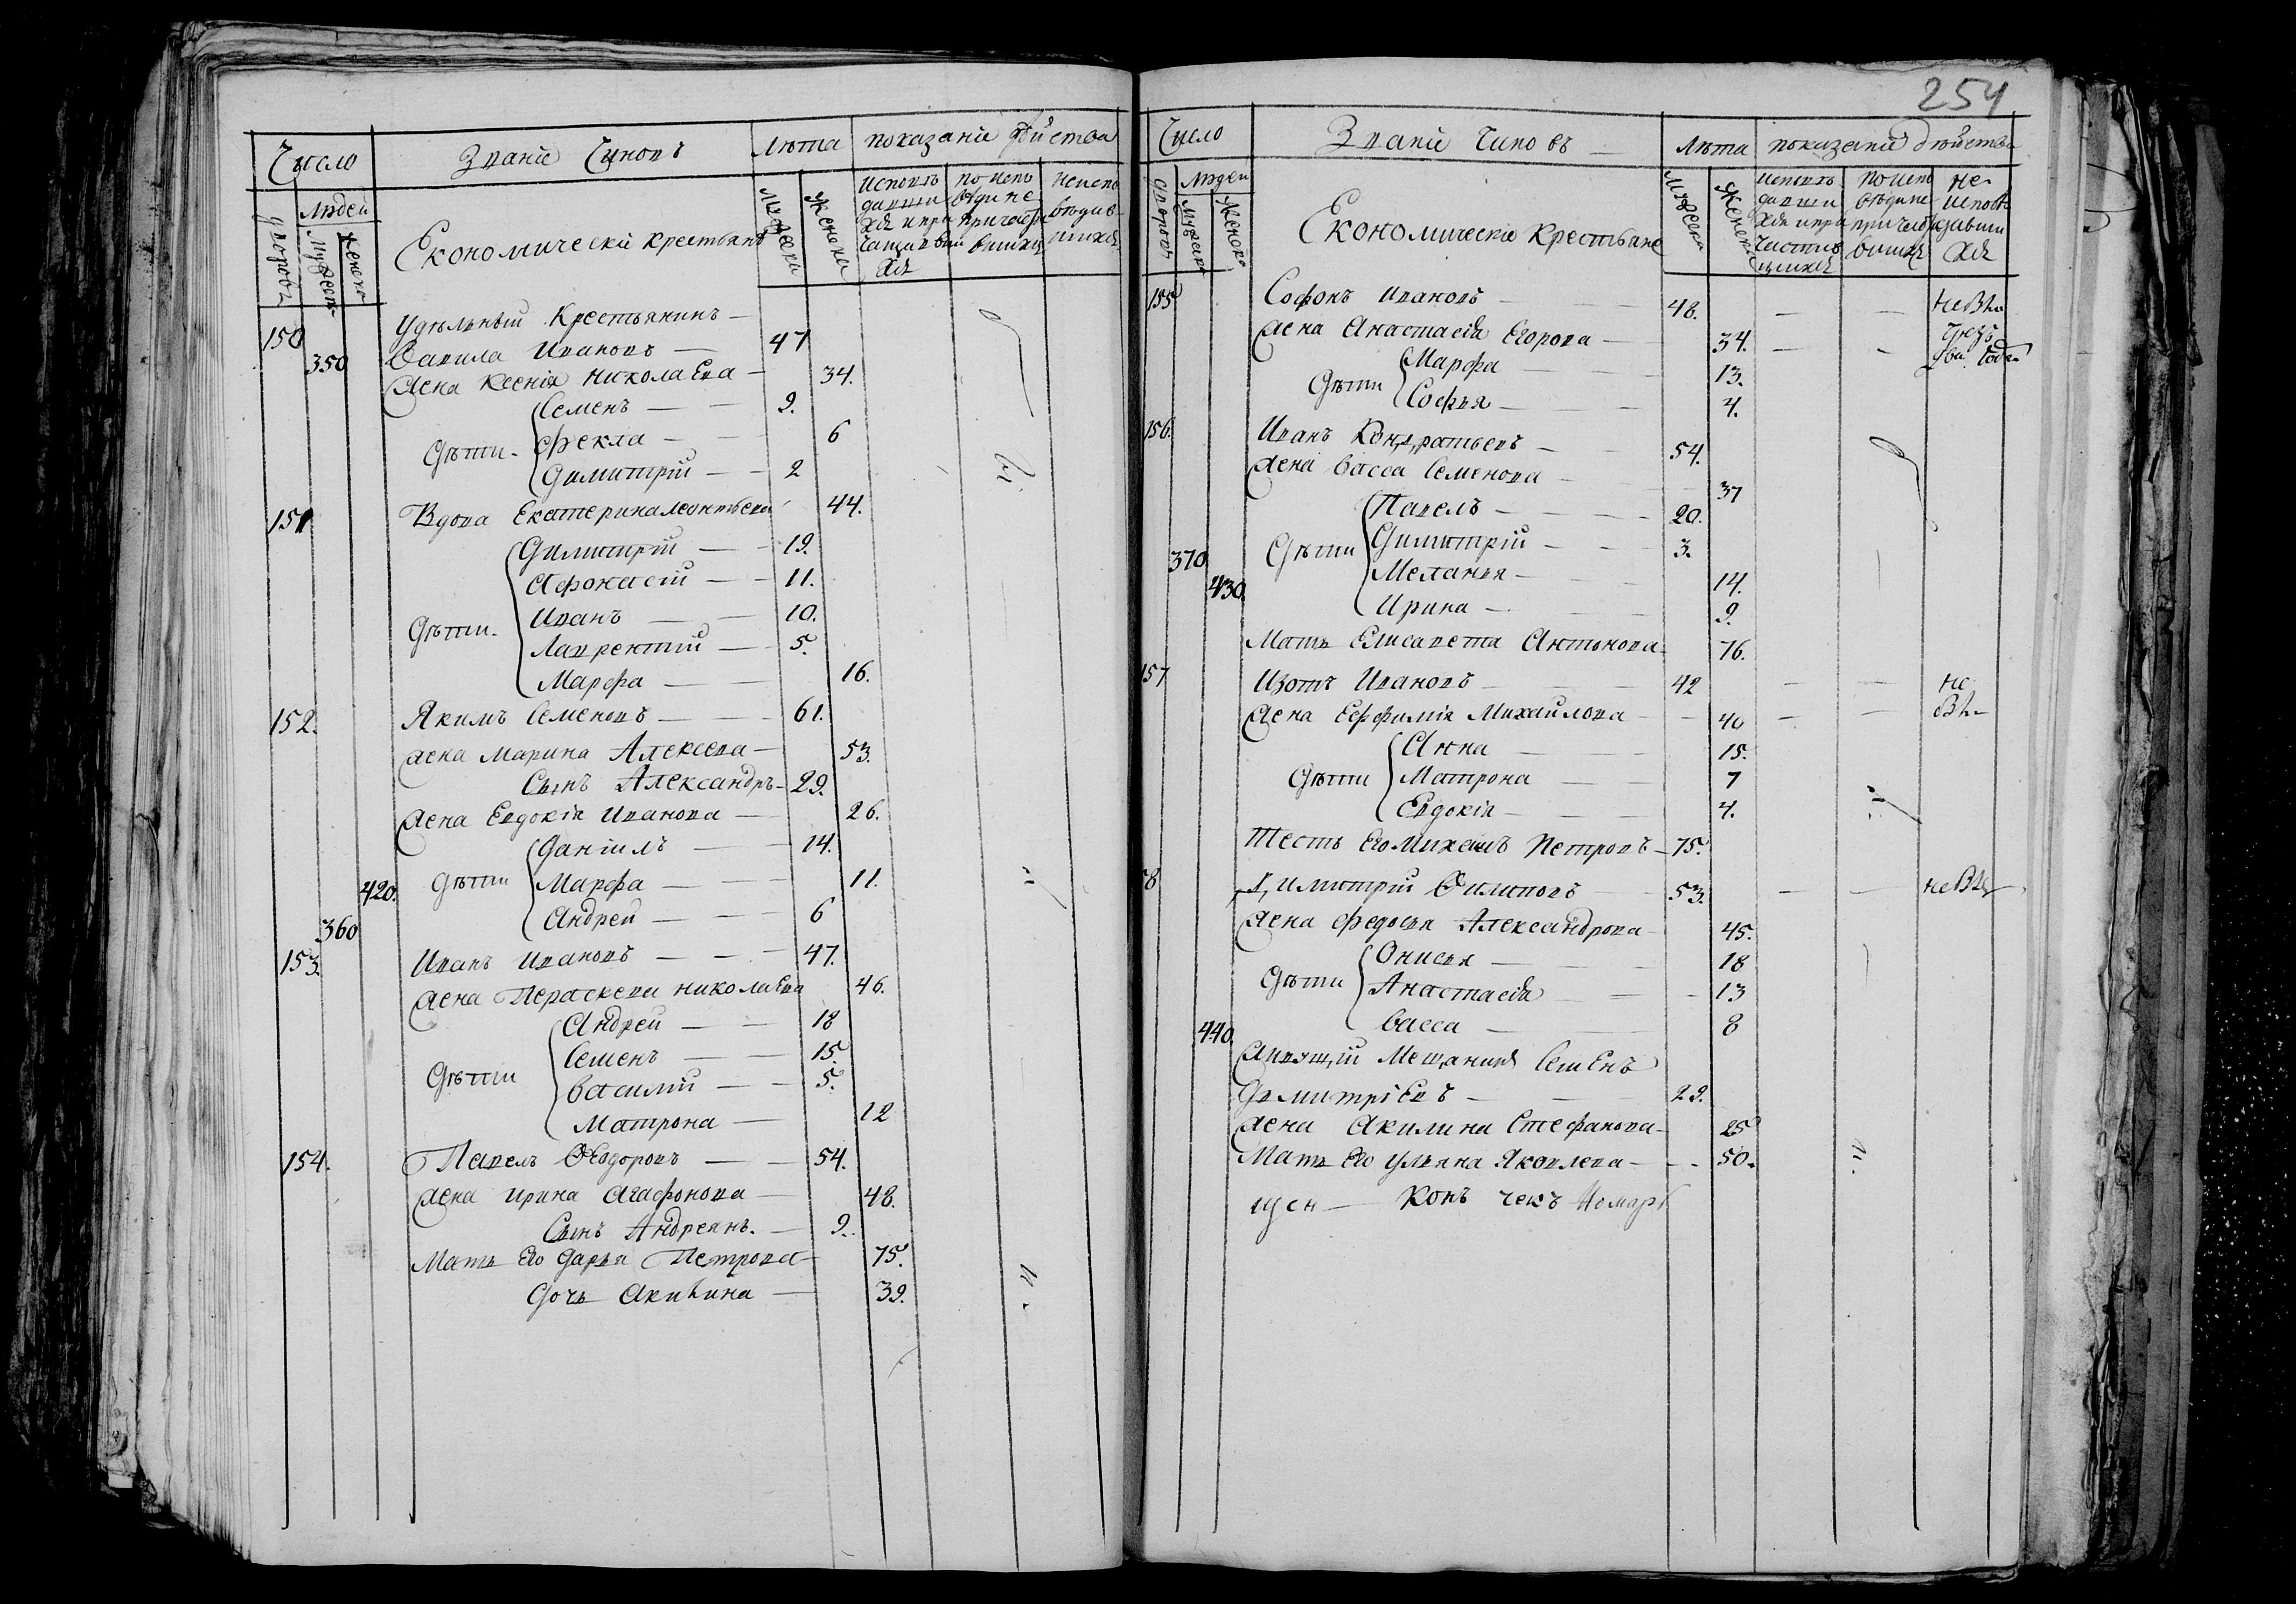 Число Званіе Чиновъ Лѣта показаніе дѣйства
Людей
дворовъ
Мужеска
Женска
Економическіе крестьяне
Мужеска
Женска
исповѣ
давши
хся и при
чащавши
хся
по испо
вѣди не
причасти
вшихся
неиспо
вѣдав
шихся
Удѣльный Крестьянинъ —
150 350 Данила Ивановъ — 47
Жена Ксенія Николаева — 34.
Семенъ — 9.
Дѣти. Фекла — 6
Димитрій — 2
151 Вдова Екатерина Леонтьева 44.
Димитрій — 19.
Афонасій — 11.
Иванъ — 10.
Дѣти. Лаврентій — 5.
Марфа — 16.
152. Якимъ Семеновъ — 61.
Жена Марина Алексеева — 53.
Сынъ Александръ — 29.
Жена Евдокія Иванова — 26.
Даніилъ — 14.
420. Дѣти Марфа — 11.
360 Андрей — 6
153. Иванъ Ивановъ — 47.
Жена Параскева Николаева 46.
Андрей — 18
Семенъ — 15.
Дѣти Василий — 5.
Матрона — 12
154. Павелъ Феодоровъ — 54.
Жена Ирина Агафонова — 48.
Сынъ Андреянъ. — 9.
Мать его Дарья Петрова — 75.
Дочь Акилина — 39.
254
Число Званіе Чиновъ Лѣта показаніе дѣйства
Людей
дворовъ
Мужеска
Женска
Економическіе крестьяне
Мужеска
Женска
исповѣ
давши
хся и при
частив
шихся
по испо
вѣди не
причасти
вшихся
не
исповѣ
давши
хся
155 Софонъ Ивановъ — 48. — —
Жена Анастасія Егорова — 34. — — два года
Марфа — 13.
Дѣти Софья — 4.
156. Иванъ Кондратьевъ — 54.
Жена Васса Семенова — 37
Павелъ — 20.
370 Дѣти Димитрій — 3.
430. Меланья — 14.
Ирина — 9.
Мать Елисавета Антонова — 76.
157 Изотъ Ивановъ — 42 — — не
Жена Евфимія Михайлова — 40 — —
Анна — 15.
Дѣти Матрона — 7
Евдокія — 4.
Тесть его Михаилъ Петровъ — 75.
8 Димитрій Филиповъ — 53. — —
Жена Федосья Александрова — 45.
Онисья — 18
Дѣти Анастасія — 13
440. Васса — 8
Мещанинъ Семенъ
Димитріевъ — 29.
Жена Акилина Стефанова — 25
Мать его Ульяна Яковлева — 50.